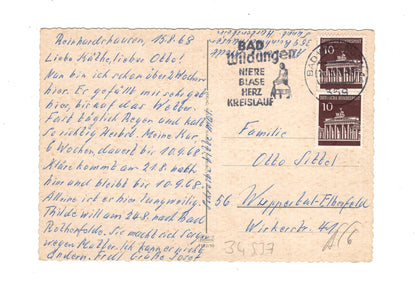 Reinhardshausen, 15.8.68
Liebe Käthe, lieber Otto!
Nun bin ich schon über 2 Wochen
hier. Er gefällt mir sehr gut
hier, bis auf das Wetter.
Fast täglich Regen und kalt
so richtig Herbst. Meine Kur
6 Wochen, dauert bis 10.9.68
Kläre kommt am 21.8. nach
hier und bleibt bis 10.9.68
Alleine ist es hier langweilig.
Thilde will am 24.8. nach Bad
Rothenfelde. Sie macht sich Sorgen
wegen Mutter. Ich kann es nicht
ändern. Frdl. Grüße Josef
schreibe bitte mal
BAD
Wildungen
NIERE
BLASE
HERZ
KREISLAUF
BAD
359
10
DEUTSCHE BUNDESPOST
10
DEUTSCHE BUNDESPOST
Familie
Otto Sittel
56 Wuppertal-Elberfeld
Wirkerstr. 45
34537